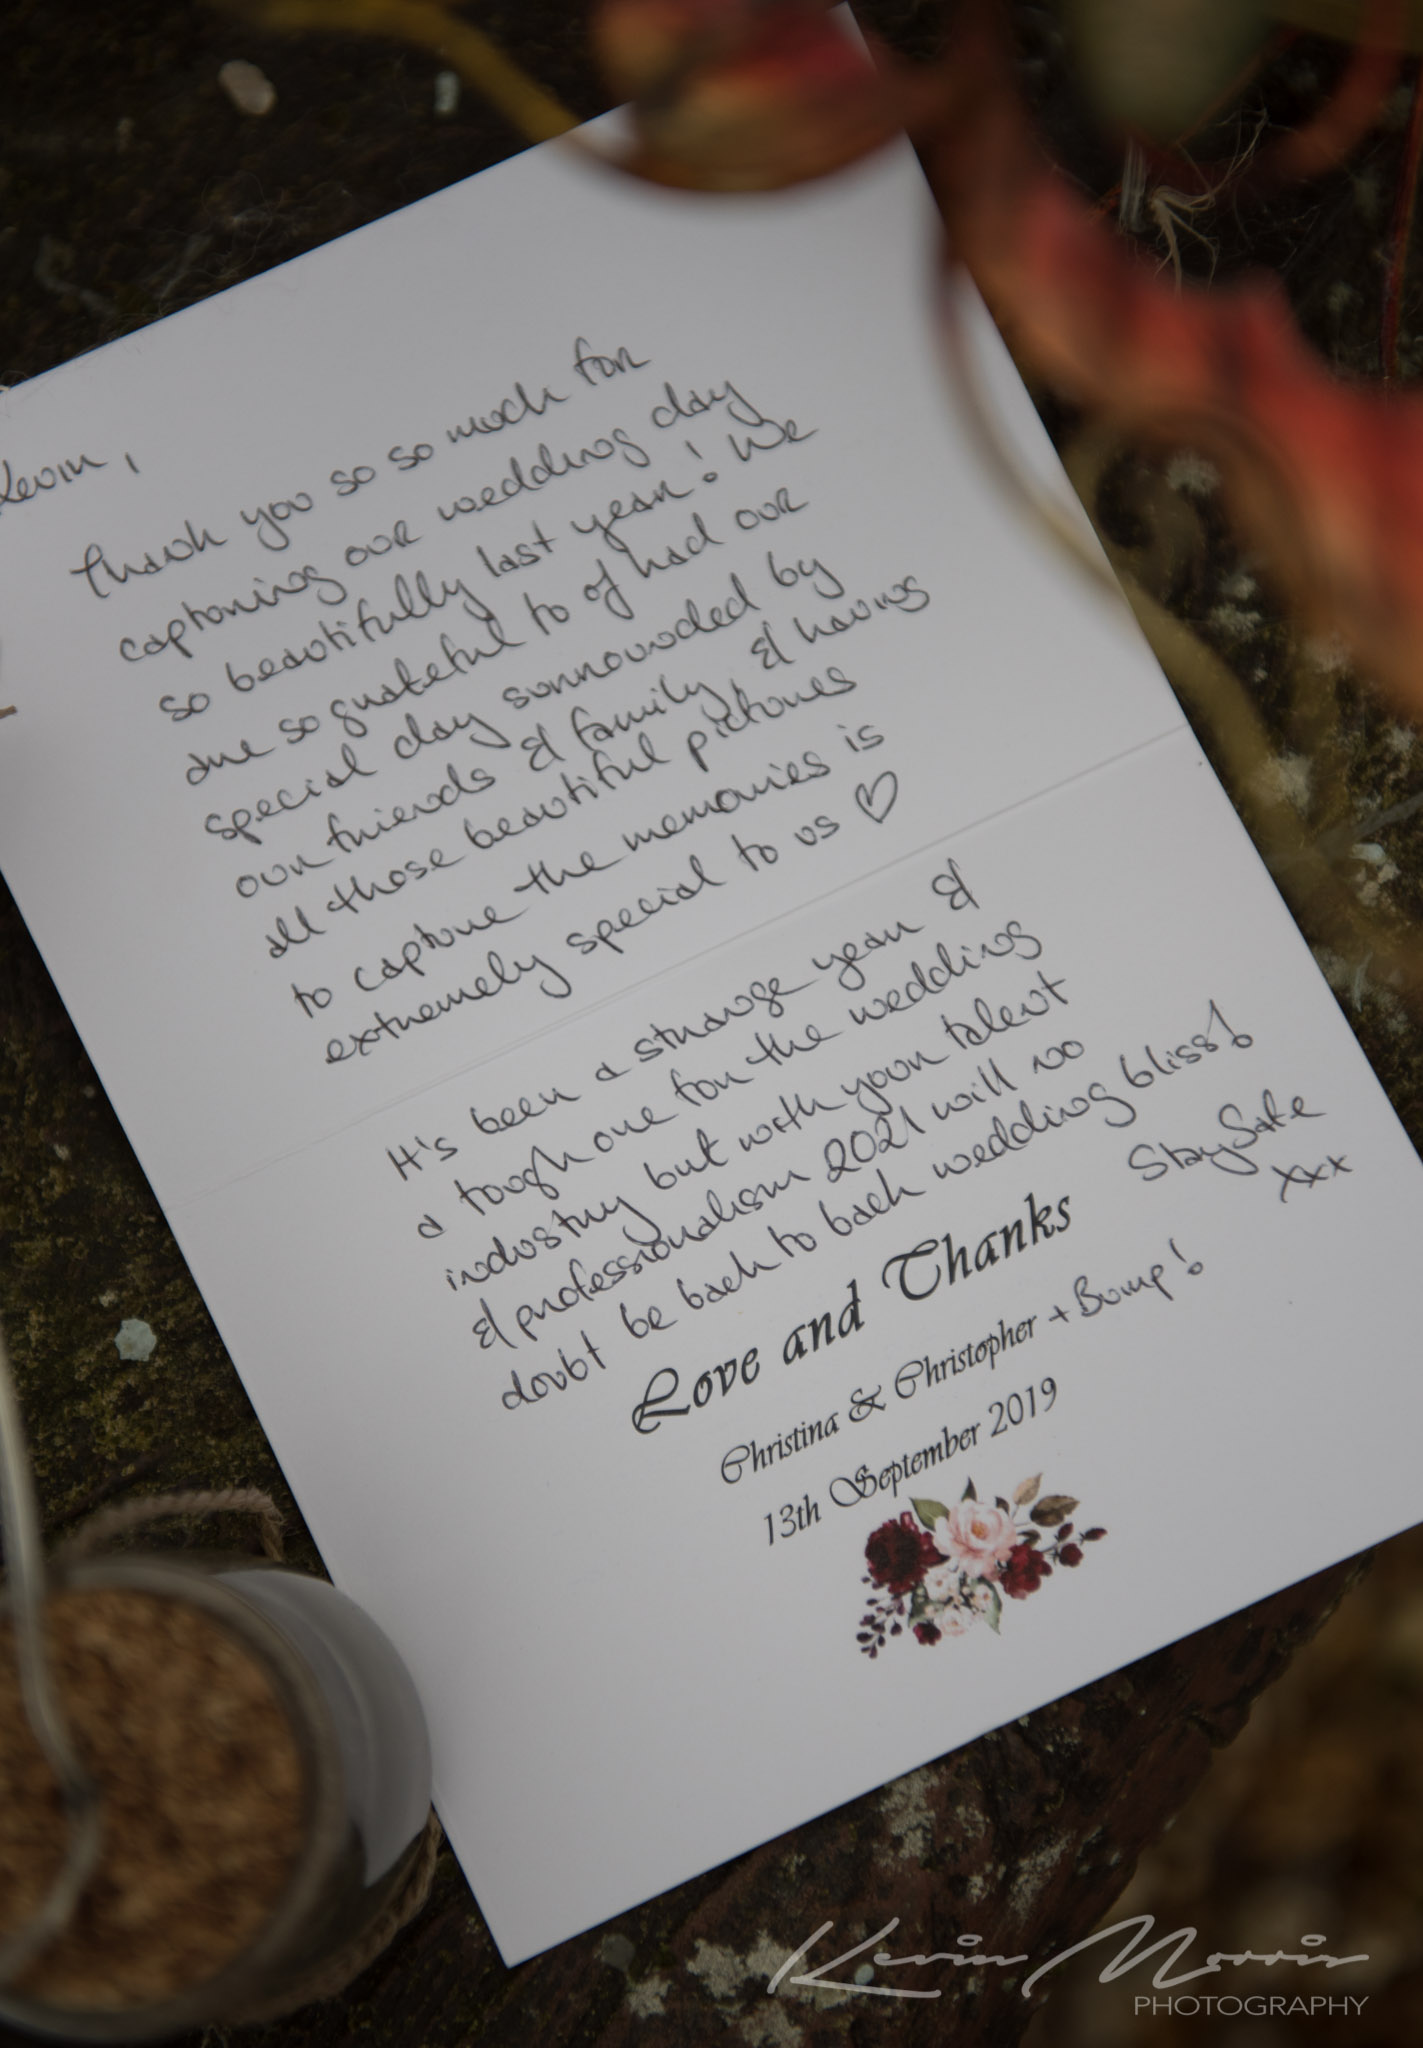 Kevin,
Thank you so so much for
capturing our wedding day
so beautifully last year! We
are so grateful to of had our
special day surrounded by
our friends & family, & having
all those beautiful pictures
to capture the memories is
extremely special to us ♡
It's been a strange year &
a tough one for the wedding
industry but with your talent
& professionalism 2021 will no
doubt be back to back wedding bliss!
Stay Safe
xxx
Love and Thanks
Christina & Christopher + Bump!
13th September 2019
Kevin Morris
PHOTOGRAPHY